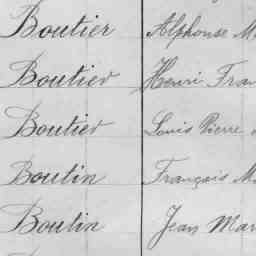 Boutier Alphonse M
Boutier Henri Fran
Boutier Louis Pierre
Boutin François M
Boutin Jean Mar